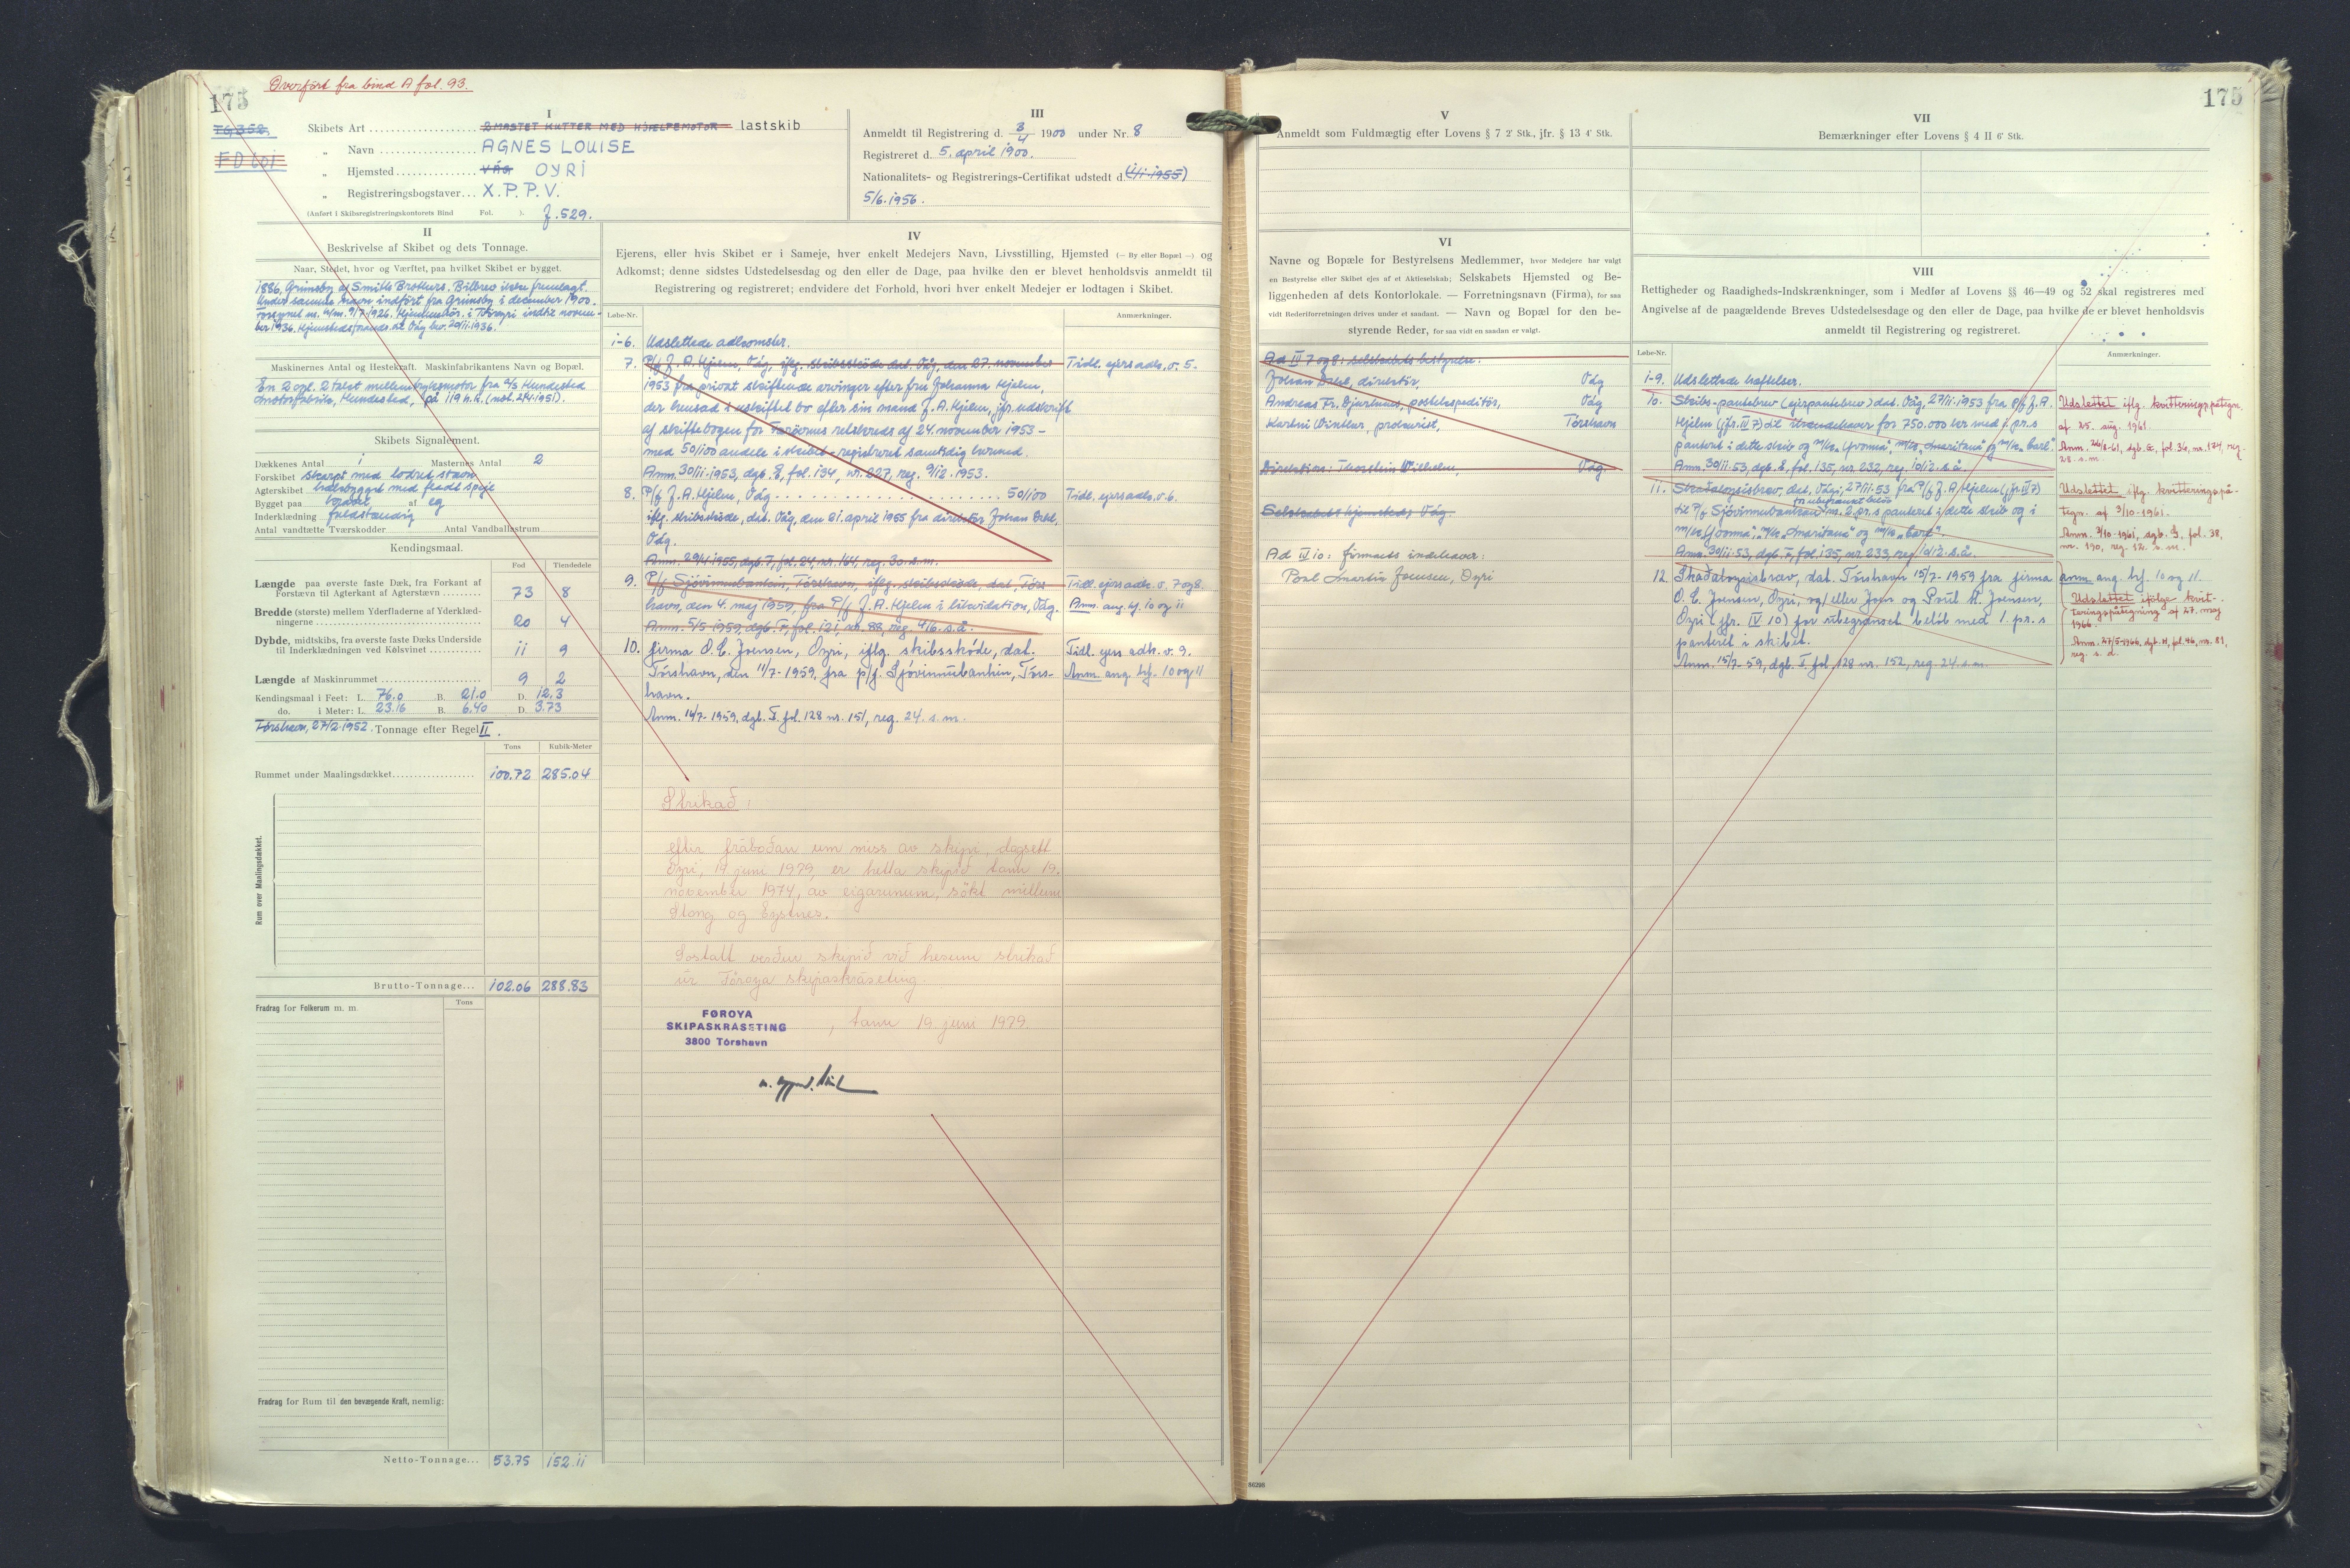 Overført fra bind A fol. 93.
175
TG 352.
I
Skibets Art 2 MASTET KUTTER MED HJÆLPEMOTOR lastskib
" Navn AGNES LOUISE
" Hjemsted VÁG OYRI
" Registreringsbogstaver X.P.P.V.
(Anført i Skibsregistreringskontorets Bind Fol. ). J. 529.
III
Anmeldt til Registrering d. 3/4 1900 under Nr. 8
Registreret d. 5. april 1900.
Nationalitets- og Registrerings-Certifikat udstedt d. (4/1-1955)
5/6.1956.
II
Beskrivelse af Skibet og dets Tonnage.
Naar, Stedet, hvor og Værftet, paa hvilket Skibet er bygget.
1886, Grimsby af Smith Brothers. Bilbrev ikke fremlagt.
Under samme navn indført fra Grimsby i december 1900.
Maskinernes Antal og Hestekraft. Maskinfabrikantens Navn og Bopæl.
En 2 cyl. 2 takt mellemtryksmotor fra A/S Hundested
Motorfabrik, Hundested, på 119 h.k. (nobl. 2/4.1951).
Skibets Signalement.
Dækkenes Antal 1 Masternes Antal 2
Forskibet skarpt med lodret stævn
Agterskibet hækbygget med fladt spejl
Bygget paa kravel af eg
Inderklædning fuldstændig
Antal vandtætte Tværskodder Antal Vandballastrum
Kendingsmaal.
Fod Tiendedele
Længde paa øverste faste Dæk, fra Forkant af
Forstævn til Agterkant af Agterstævn 73 8
Bredde (største) mellem Yderfladerne af Yderklæd-
ningerne 20 4
Dybde, midtskibs, fra øverste faste Dæks Underside
til Inderklædningen ved Kølsvinet 11 9
Længde af Maskinrummet 9 2
Kendingsmaal i Feet: L. 76.0 B. 21.0 D. 12.3
do. i Meter: L. 23.16 B. 6.40 D. 3.73
Tórshavn, 27/2.1952. Tonnage efter Regel II.
Tons Kubik-Meter
Rummet under Maalingsdækket 100.72 285.04
Rum over Maalingsdækket.
Brutto-Tonnage... 102.06 288.83
Fradrag for Folkerum m. m. Tons
Fradrag for Rum til den bevægende Kraft, nemlig:
Netto-Tonnage... 53.75 152.11
IV
Ejerens, eller hvis Skibet er i Sameje, hver enkelt Medejers Navn, Livsstilling, Hjemsted (— By eller Bopæl —) og
Adkomst; denne sidstes Udstedelsesdag og den eller de Dage, paa hvilke den er blevet henholdsvis anmeldt til
Registrering og registreret; endvidere det Forhold, hvori hver enkelt Medejer er lodtagen i Skibet.
Løbe-Nr. Anmærkninger.
1-6. Udslettede adkomster.
7. P/f J. A. Kjelen, Vág, iflg. skibsskøde dat. Våg, den 27. november Tidl. ejers adk. v. 5.
1953 fra privat skiftende arvinger efter fru Johanna Kjelen,
der hensad i uskiftet bo efter sin mand J. A. Kjelen, jfr. udskrift
af skiftebogen for Færøernes retskreds af 24. november 1953 –
med 50/100 andele i skibet – registreret samtidig hermed.
Anm. 30/11-1953, dgb. E, fol. 134, nr. 227, reg. 9/12. 1953.
8. P/f J. A. Kjelen, Vág 50/100 Tidl. ejers adk. v. 6.
iflg. skibsskøde, dat. Våg, den 21. april 1955 fra direktør Johan Dahl,
Vág.
Anm. 29/4.1955, dgb. F, fol. 24, nr. 144, reg. 30. s.m.
9. P/f Sjóvinnubankin, Tórshavn, iflg. skibsskøde, dat. Tórs- Tidl. ejers adk. v. 7 og 8.
havn, den 4. maj 1959, fra P/f J. A. Kjelen i likvidation, Vág. Anm. ang. hf. 10 og 11
Anm. 5/5 1959, dgb. F, fol. 121, nr. 88, reg. 4/6. s.å.
10. firma O. C. Joensen, Oyri, iflg. skibsskóde, dat. Tidl. ejers adk. v. 9.
Tórshavn, den 11/7-1959, fra p/f. Sjóvinnubankin, Tórs- Anm. ang. hf. 10 og 11
havn.
Anm. 14/7-1959, dgb. F fol. 128 nr. 151, reg. 24. s. m.
Strikað:
eftir fráboðan um miss av skipi, dagsett
Oyri, 19 juni 1979, er hetta skipið tann 19.
november 1974, av eigarunum, søkt millum
Stong og Eystnes.
Sostatt verður skipið við hesum strikað
úr Føroya skipaskráseting
FØROYA
SKIPASKRÁSETING
3800 Tórshavn
, tann 19 juni 1979.
V
Anmeldt som Fuldmægtig efter Lovens § 7 2' Stk., jfr. § 13 4' Stk.
VI
Navne og Bopæle for Bestyrelsens Medlemmer, hvor Medejere har valgt
en Bestyrelse eller Skibet ejes af et Aktieselskab; Selskabets Hjemsted og Be-
liggenheden af dets Kontorlokale. — Forretningsnavn (Firma), for saa
vidt Rederiforretningen drives under et saadant. — Navn og Bopæl for den be-
styrende Reder, for saa vidt en saadan er valgt.
Ad IV 7 og 8: selskabets bestyrelse:
Johan Dahl, direktør, Vág
Andreas Fr. Djurhuus, postekspeditör, Vág
Karl Winther, prokurist, Tórshavn
Direktion: Thorstein Vilhelm, Vág.
Selskabets hjemsted: Vág.
Ad IV 10: firmaets indehaver:
Poul Martin Joensen, Oyri
175
VII
Bemærkninger efter Lovens § 4 II 6' Stk.
VIII
Rettigheder og Raadigheds-Indskrænkninger, som i Medfør af Lovens §§ 46—49 og 52 skal registreres med
Angivelse af de paagældende Breves Udstedelsesdage og den eller de Dage, paa hvilke de er blevet henholdsvis
anmeldt til Registrering og registreret.
Løbe-Nr. Anmærkninger.
1-9. Udslettede hæftelser.
10. Skibs-pantebrev (ejerpantebrev) dat. Vág, 27/11-1953 fra P/f J. A. Udslettet iflg. kvitteringspåtegn.
Kjelen (jfr. IV 7) til ihændehaver for 750.000 kr. med 1. pr. s af 25. aug. 1961.
Anm. 30/11-53, dgb. E, fol. 135, nr. 232, reg. 10/12. s.å.
11. Skadesløsbrev, dat. Vág, 27/11-53 fra P/f J. A. Kjelen (jfr. IV 7) Udslettet iflg. kvitteringspå-
for ubegrænset beløb tegn. af 3/10-1961.
til P/f Sjóvinnubankin m. 2. pr. s panteret i dette skib og i
Anm. 30/11-53, dgb. E, fol. 135, nr. 233, reg. 10/12. s.å.
12. Skaðaloysisbræv, dat. Tórshavn 15/7-1959 fra firma Anm. ang. hf. 10 og 11.
O. C. Joensen, Oyri, og/eller Jens og Poul M. Joensen, Udslettet ifølge kvit-
Oyri (jfr. IV 10) for ubegrænset beløb med 1. pr. s teringspåtegning af 27. maj
panteret i skibet. 1966.
Anm. 15/7-59, dgb. F fol. 128 nr. 152, reg. 24. s. m. Anm. 27/5-1966, dgb. H, fol. 46, nr. 81,
reg. s. d.